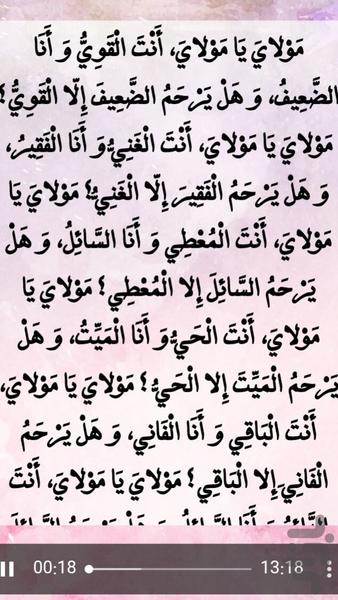 مَوْلايَ يَا مَوْلايَ، أَنْتَ الْقَوِيُّ وَ أَنَا
الضَّعِيفُ، وَ هَلْ يَرْحَمُ الضَّعِيفَ إِلّا الْقَوِيُّ؟
مَوْلايَ يَا مَوْلايَ، أَنْتَ الْغَنِيُّ وَ أَنَا الْفَقِيرُ،
وَ هَلْ يَرْحَمُ الْفَقِيرَ إِلّا الْغَنِيُّ؟ مَوْلايَ يَا
مَوْلايَ، أَنْتَ الْمُعْطِي وَ أَنَا السَّائِلُ، وَ هَلْ
يَرْحَمُ السَّائِلَ إِلا الْمُعْطِي؟ مَوْلايَ يَا
مَوْلايَ، أَنْتَ الْحَيُّ وَ أَنَا الْمَيِّتُ، وَ هَلْ
يَرْحَمُ الْمَيِّتَ إِلا الْحَيُّ؟ مَوْلايَ يَا مَوْلايَ،
أَنْتَ الْبَاقِي وَ أَنَا الْفَانِي، وَ هَلْ يَرْحَمُ
الْفَانِيَ إِلا الْبَاقِي؟ مَوْلايَ يَا مَوْلايَ، أَنْتَ
00:18 13:18